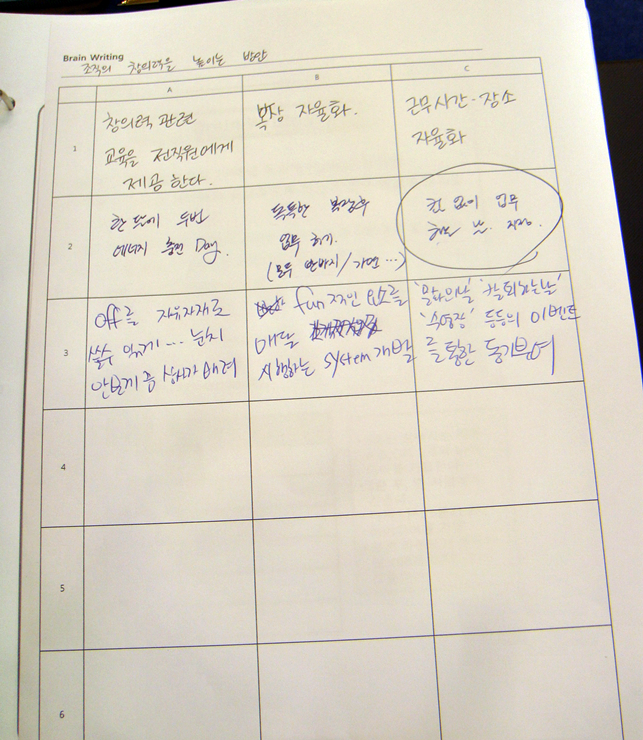 Brain Writing
조직의 창의력을 높이는 방안
A B C
1
창의력 관련
교육을 전직원에게
제공한다.
복장 자율화.
근무시간·장소
자율화
2
한 달에 두번
에너지 충전 Day.
독특한 복장으로
업무 하기.
(모두 반바지/가면 ...)
컴 없이 업무
하는 날 지정.
3
off를 자유자재로
쓸수 있게 ... 눈치
안보게끔 상사가 배려
fun적인 요소를
매달
시행하는 system 개발
'칼퇴하는날'
'수영장' 등등의 이벤트
를 통한 동기부여
4
5
6